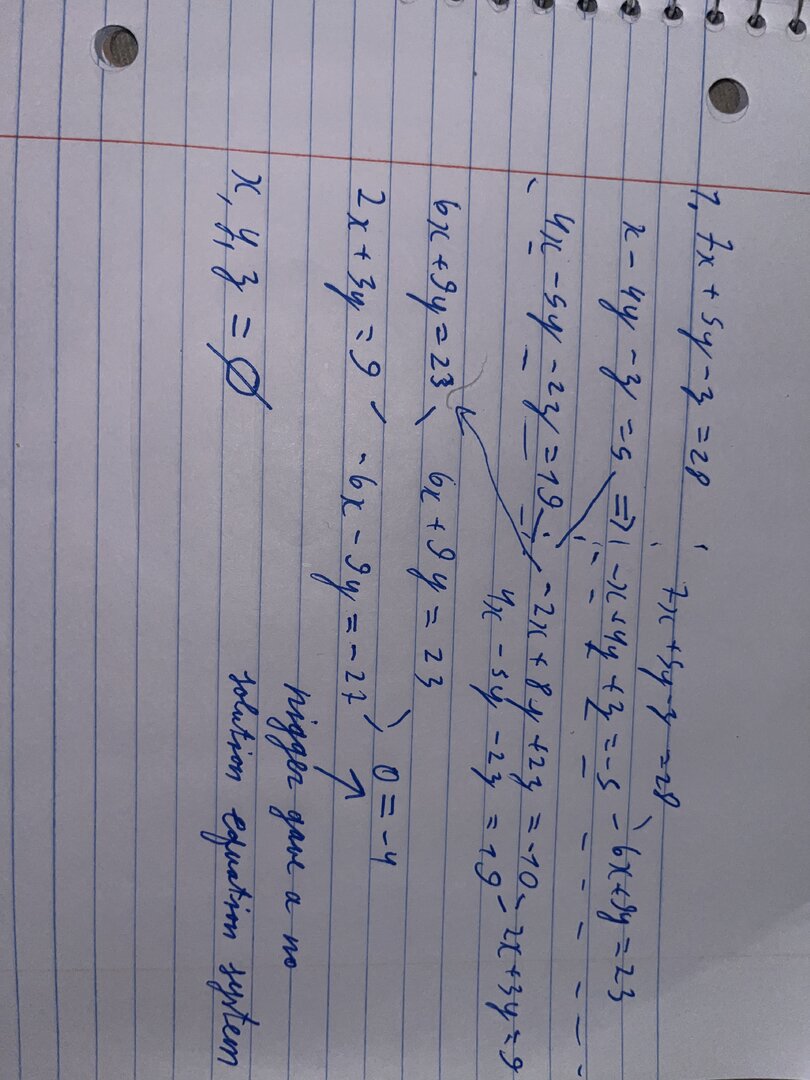 1, 7x + 5y - z = 28 , 7x + 5y - z = 28
x - 4y - z = 5 => | -x + 4y + z = -5 - 6x + 9y = 23
4x - 5y - 2z = 19 - , -2x + 8y + 2z = -10 - 2x + 3y = 9
4x - 5y - 2z = 19
6x + 9y = 23 , 6x + 9y = 23
2x + 3y = 9 , -6x - 9y = -27 , 0 = -4
nigger gave a no
x, y, z = ∅
solution equation system